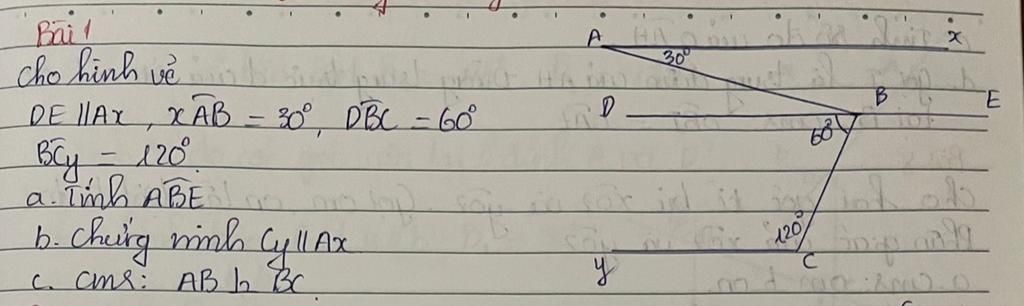 Bài 1
Cho hình vẽ
DE // Ax, xÂB = 30°, DB̂C = 60°
BĈy = 120°.
a. Tính AB̂E
b. Chứng minh Cy // Ax
c. cmr: AB ⊥ BC
A x
30°
D B E
60°
120°
y C